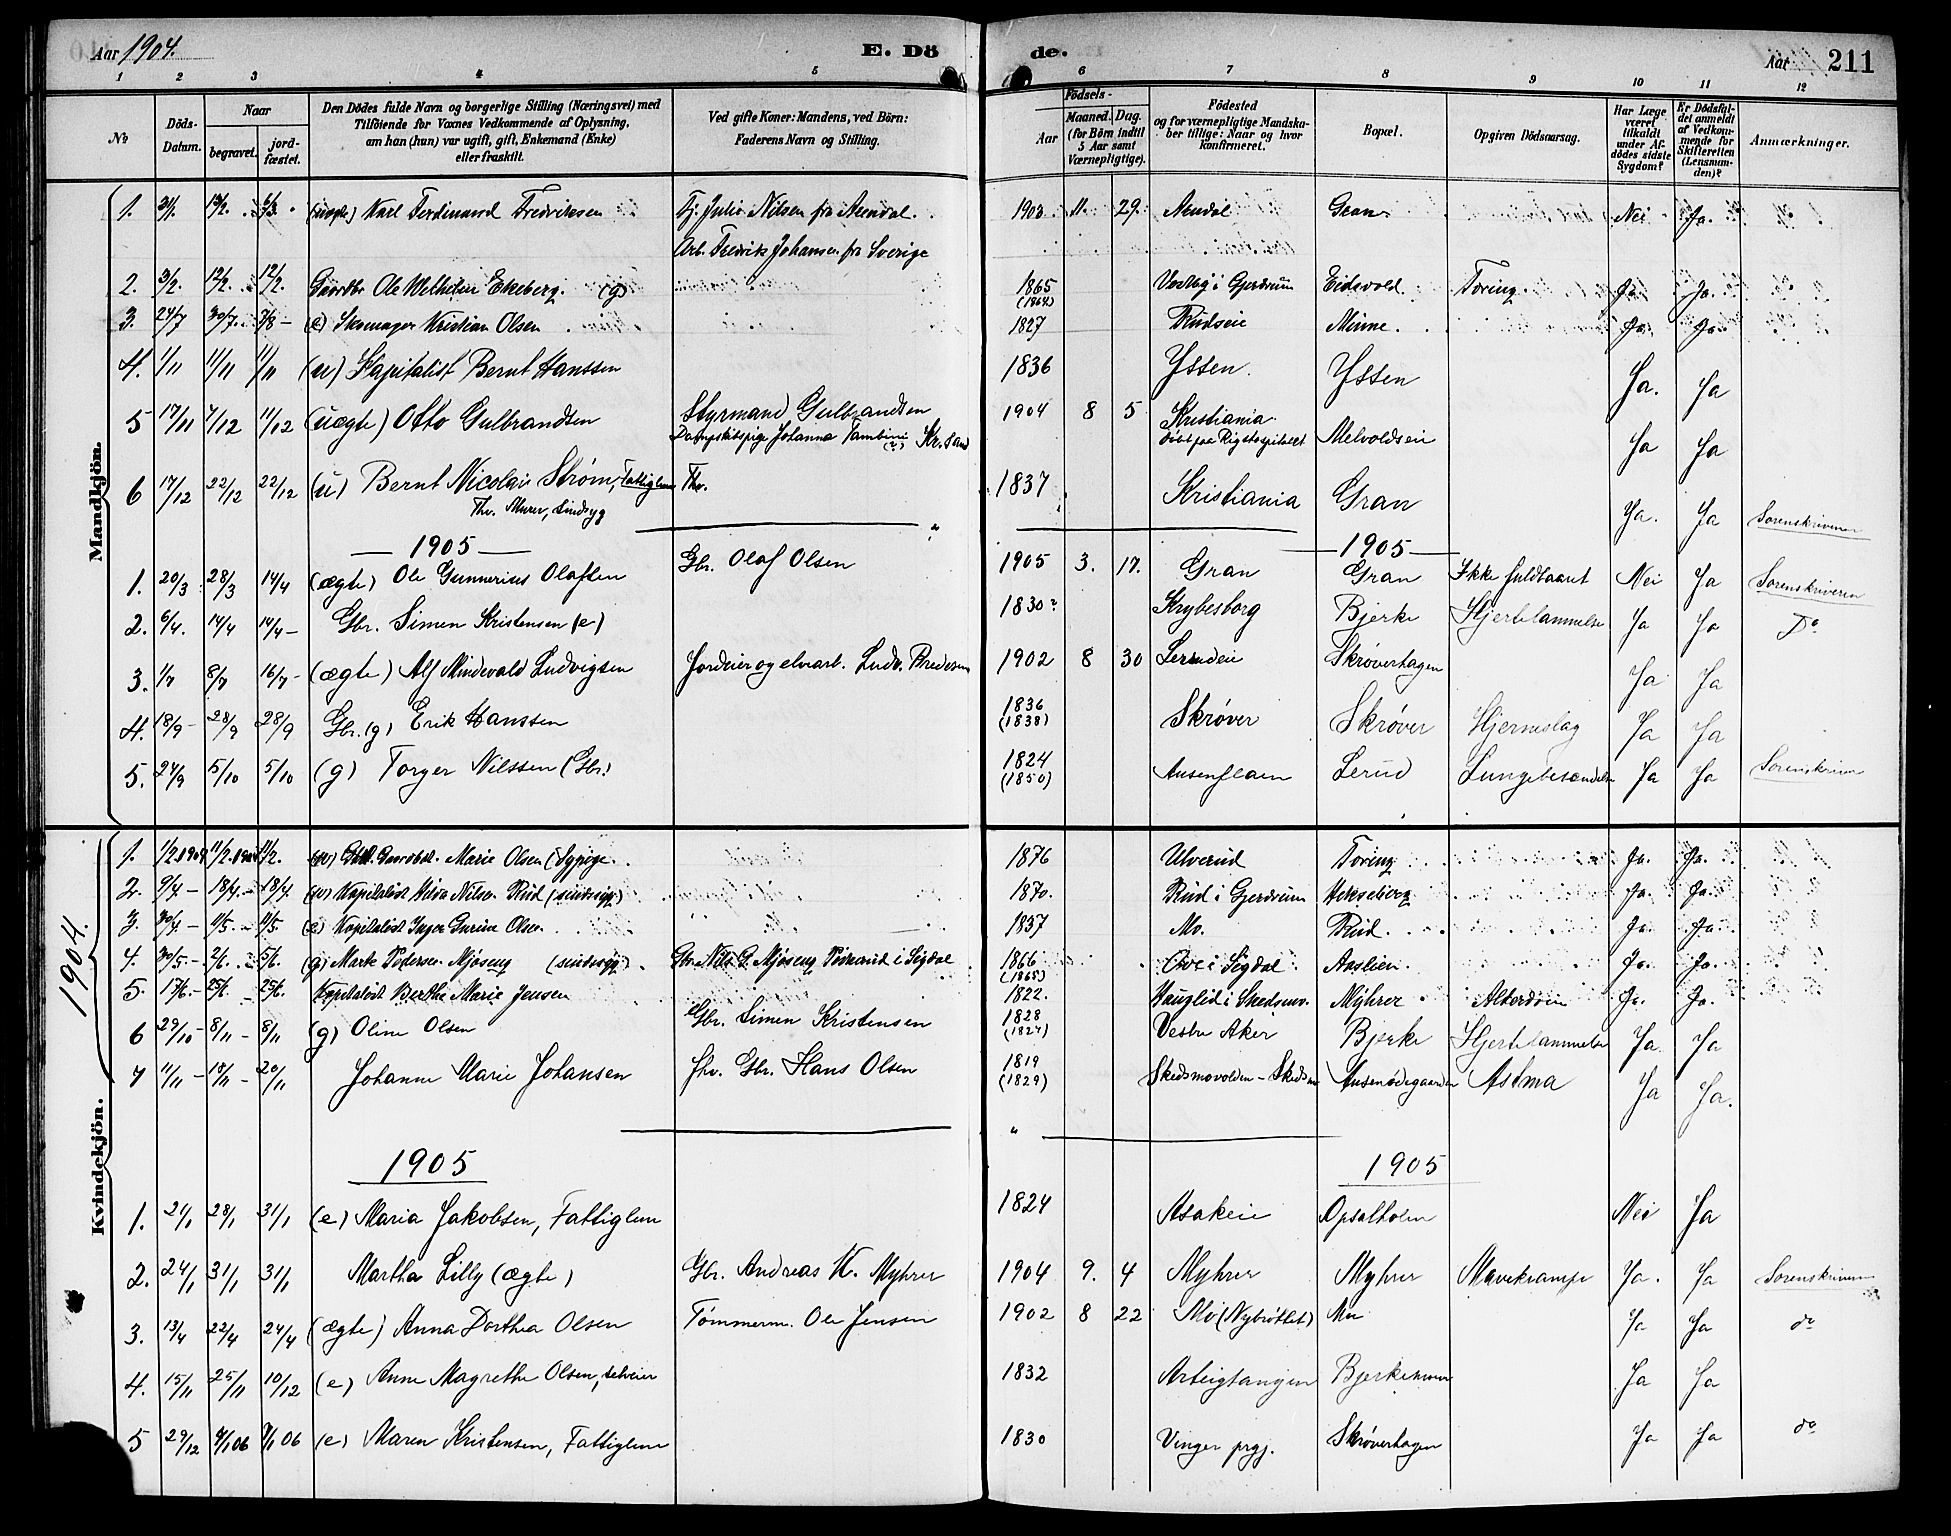 Aar 1904.
E. Dö
de.
Aar
211
1 2 3 4 5 6 7 8 9 10 11 12
No
Döds-Datum.
Naar
begravet.
jord-fæstet.
Den Dödes fulde Navn og borgerlige Stilling (Næringsvei) med
Tilföiende for Voxnes Vedkommende af Oplysning,
om han (hun) var ugift, gift, Enkemand (Enke)
eller fraskilt.
Ved gifte Koner: Mandens, ved Börn:
Faderens Navn og Stilling.
Födsels-
Aar
Maaned.
Dag.
(for Börn indtil
5 Aar samt
Værnepligtige).
Födested
og for værnepligtige Mandska-
ber tillige: Naar og hvor
konfirmeret.
Bopæl.
Opgiven Dödsaarsag.
Har Læge
været
tilkaldt
under Af-
dödes sidste
Sygdom?
Er Dödsfal-
det anmeldt
af Vedkom-
mende for
Skifteretten
(Lensman-
den)?
Anmærkninger.
Mandkjön.
1. 31/1. 12/2. 6/3. (uægte) Karl Ferdinand Fredriksen Tj. Julie Nilsen fra Arendal. 1903 11. 29. Arendal Gran Nei Ja.
Arb. Fredrik Johansen fr Sverige
2. 3/2. 12/2. 12/2. Ole Wilhelm Ekeberg. (g) 1865 i Gjerdrum Eidsvold Ja. Ja.
(1864)
3. 24/7 30/7. 7/8 – (e) Skomager Kristian Olsen 1827 Rudseie Minne. Ja. Ja.
4. 1/11 11/11 11/11 (u) Kapitalist Bernt Hanssen 1836 Yssen. Yssen Ja. Ja
5 17/11 7/12 11/12 (uægte) Otto Gulbrandsen Styrmand Gulbrandsen 1904 8 5 Kristiania Melvoldseie Ja Ja
Dampskibspige Johanna Tambini (?) Kr.sand
døbt paa Rigshospitalet
6 17/12 22/12 22/12 (u) Bernt Nicolai Strøm, Fattiglem Thv. 1837 Kristiania Gran Ja. Ja Sorenskriveren
Thv. Murer, Sindsyg
— 1905 —
— 1905 —
1. 20/3 28/3 14/4 (ægte) Ole Gunnerius Olafsen Gbr. Olaf Olsen 1905 3. 17. Gran Gran Ikke fuldbaaret Nei Ja Sorenskriveren
2. 6/4. 14/4 14/4 – Gbr. Simen Kristensen (e) 1830? Krybesborg Bjerke Hjertelammelse Ja Ja Do
3. 1/7 8/7 16/7 – (ægte) Alf Mindevald Ludvigsen Jordeier og elvearb. Ludv. Bredesen 1902 8 30 Lerudeie Skrøverhagen Ja Ja
4. 18/9 – 28/9 28/9 Gbr. (g) Erik Hanssen 1836 Skrøver Skrøver Hjerneslag Ja Ja
(1838)
5. 24/9 5/10 5/10 (g) Torger Nilssen (Gbr.) 1824 Lerud Lungebetændelse Ja Ja Sorenskriveren
(1850)
1904.
Kvindekjön.
1. 1/2.1904 11/2.1904 11/2. Marie Olsen (Sypige. 1876 Ulverud Ja. Ja.
2. 9/4 – 18/4. – 18/4. Kapitalist Hilda Nilsen Rud (sindssyg.) 1870. Rud i Gjerdrum Hekseberg Ja. Ja.
3. 30/4 – 11/5. – 11/5. (e) Kapitalist Inger Gurine Olsen. 1837 Mo. Rud. Ja. Ja.
4. 30/5. – 2/6. 5/6. (g) Marte Pedersen Mjøseng (sindssyg.) Gbr. Nils G. Mjøseng i Sigdal 1866 i Sigdal. Aaslien. Ja. Ja.
(1865)
5. 17/6. – 25/6. – 25/6. Kapitalist Berthe Marie Jensen 1822. Hauglid i Skedsmo. Myhrer Alderdom Ja. Ja.
6 29/10 – 8/11 – 8/11 (g) Oline Olsen Gbr. Simen Kristensen 1828 Vestre Aker Bjerke Hjertelammelse Ja. Ja
(1827)
7 11/11 – 18/11 – 20/11 Johanne Marie Johansen fhv. Gbr. Hans Olsen 1819 Skedsmovolden – Skedsmo Ausenødegaarden Astma Ja Ja.
(1829)
1905
1905
1. 21/1 28/1 31/1 (e) Maria Jakobsen, Fattiglem 1824 Asakeie Opsalholen Nei Ja
2. 24/1 31/1 31/1 Martha Lilly (ægte) Gbr. Andreas K. Myhrer 1904 9. 4 Myhrer Myhrer Mavekrampe Ja. Ja Sorenskriveren
3. 13/4 22/4 24/4 (ægte) Anna Dorthea Olsen Tømmerm. Ole Jensen 1902 8 22 Mo (Nybrøttet) Mo Ja Ja do
4. 15/11 25/11 10/12 (e) Anne Magrethe Olsen, selveier 1832 Arteigtangen Ja Ja
5 29/12 4/1 06 7/1 06 (e) Maren Kristensen, Fattiglem 1830 Vinger prgj. Skrøverhagen Ja Ja do